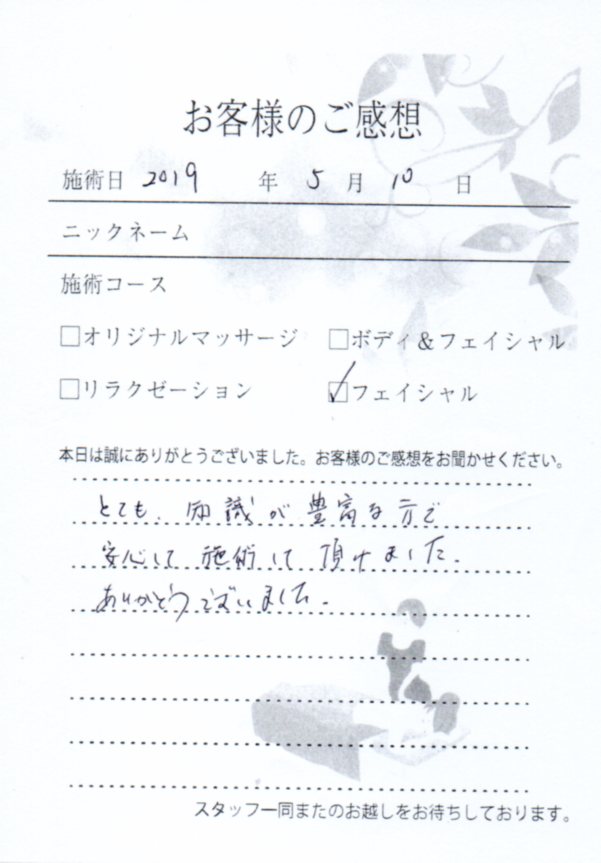 お客様のご感想
施術日 2019 年 5 月 10 日
ニックネーム
施術コース
□オリジナルマッサージ □ボディ&フェイシャル
□リラクゼーション ☑フェイシャル
本日は誠にありがとうございました。お客様のご感想をお聞かせください。
とても、知識が豊富な方で
安心して施術して頂けました。
ありがとうございました。
スタッフ一同またのお越しをお待ちしております。